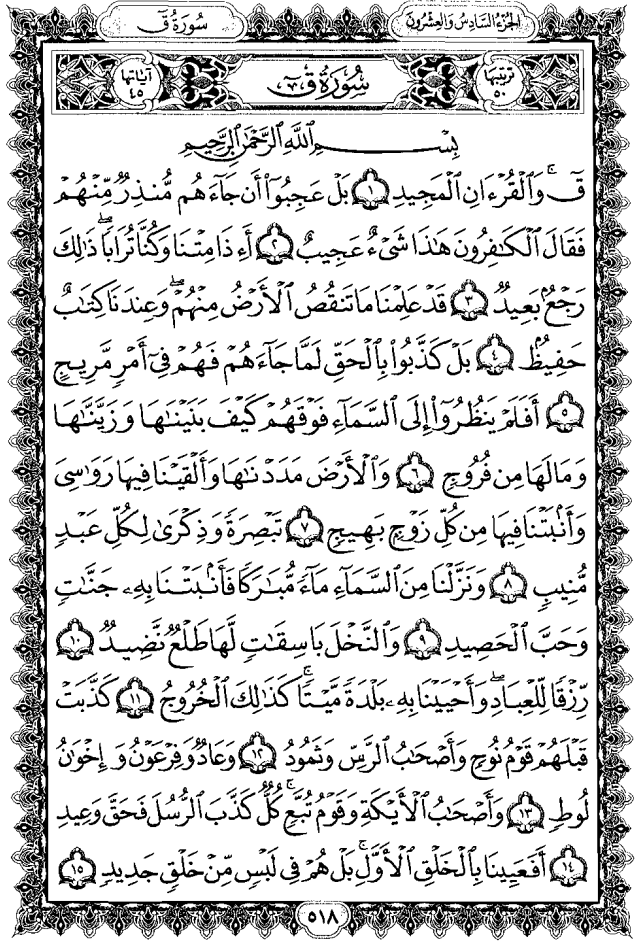 الجزء السادس والعشرون
سورة ق
ترتيبها ٥٠
سورة ق
آياتها ٤٥
بِسْمِ اللَّهِ الرَّحْمَٰنِ الرَّحِيمِ
قٓ ۚ وَالْقُرْءَانِ الْمَجِيدِ ١ بَلْ عَجِبُوٓا۟ أَن جَآءَهُم مُّنذِرٌ مِّنْهُمْ
فَقَالَ الْكَٰفِرُونَ هَٰذَا شَىْءٌ عَجِيبٌ ٢ أَءِذَا مِتْنَا وَكُنَّا تُرَابًا ۖ ذَٰلِكَ
رَجْعٌۢ بَعِيدٌ ٣ قَدْ عَلِمْنَا مَا تَنقُصُ الْأَرْضُ مِنْهُمْ ۖ وَعِندَنَا كِتَٰبٌ
حَفِيظٌۢ ٤ بَلْ كَذَّبُوا۟ بِالْحَقِّ لَمَّا جَآءَهُمْ فَهُمْ فِىٓ أَمْرٍ مَّرِيجٍ
٥ أَفَلَمْ يَنظُرُوٓا۟ إِلَى السَّمَآءِ فَوْقَهُمْ كَيْفَ بَنَيْنَٰهَا وَزَيَّنَّٰهَا
وَمَا لَهَا مِن فُرُوجٍ ٦ وَالْأَرْضَ مَدَدْنَٰهَا وَأَلْقَيْنَا فِيهَا رَوَٰسِىَ
وَأَنۢبَتْنَا فِيهَا مِن كُلِّ زَوْجٍۭ بَهِيجٍ ٧ تَبْصِرَةً وَذِكْرَىٰ لِكُلِّ عَبْدٍ
مُّنِيبٍ ٨ وَنَزَّلْنَا مِنَ السَّمَآءِ مَآءً مُّبَٰرَكًا فَأَنۢبَتْنَا بِهِۦ جَنَّٰتٍ
وَحَبَّ الْحَصِيدِ ٩ وَالنَّخْلَ بَاسِقَٰتٍ لَّهَا طَلْعٌ نَّضِيدٌ ١٠
رِّزْقًا لِّلْعِبَادِ ۖ وَأَحْيَيْنَا بِهِۦ بَلْدَةً مَّيْتًا ۚ كَذَٰلِكَ الْخُرُوجُ ١١ كَذَّبَتْ
قَبْلَهُمْ قَوْمُ نُوحٍ وَأَصْحَٰبُ الرَّسِّ وَثَمُودُ ١٢ وَعَادٌ وَفِرْعَوْنُ وَإِخْوَٰنُ
لُوطٍ ١٣ وَأَصْحَٰبُ الْأَيْكَةِ وَقَوْمُ تُبَّعٍ ۚ كُلٌّ كَذَّبَ الرُّسُلَ فَحَقَّ وَعِيدِ
١٤ أَفَعَيِينَا بِالْخَلْقِ الْأَوَّلِ ۚ بَلْ هُمْ فِى لَبْسٍ مِّنْ خَلْقٍ جَدِيدٍ ١٥
٥١٨